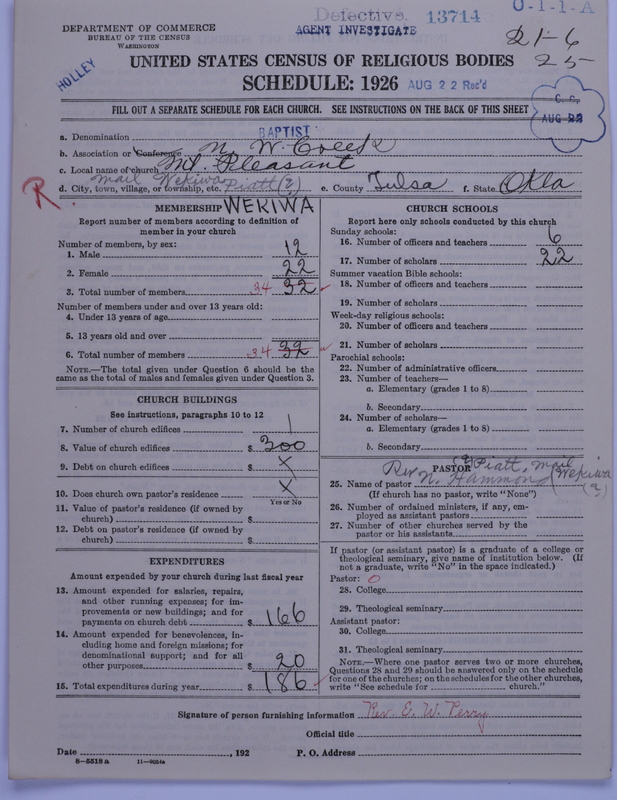 Defective. 13714 O-1-1-A
DEPARTMENT OF COMMERCE
BUREAU OF THE CENSUS
WASHINGTON
AGENT INVESTIGATE
21-6
25-
HOLLEY
UNITED STATES CENSUS OF RELIGIOUS BODIES
SCHEDULE: 1926 AUG 22 Rec'd
FILL OUT A SEPARATE SCHEDULE FOR EACH CHURCH. SEE INSTRUCTIONS ON THE BACK OF THIS SHEET
AUG 22
a. Denomination BAPTIST
b. Association or Conference N. W. Creek
c. Local name of church Mt. Pleasant
d. City, town, village, or township, etc. Mail Wekiwa Piatt (?) e. County Tulsa f. State Okla
R
MEMBERSHIP WEKIWA
Report number of members according to definition of
member in your church
Number of members, by sex:
1. Male 12
2. Female 22
3. Total number of members 34 32
Number of members under and over 13 years old:
4. Under 13 years of age
5. 13 years old and over
6. Total number of members 34 32
NOTE.—The total given under Question 6 should be
same as the total of males and females given under Question 3.
CHURCH BUILDINGS
See instructions, paragraphs 10 to 12
7. Number of church edifices 1
8. Value of church edifices $ 300
9. Debt on church edifices $ X
10. Does church own pastor's residence X
Yes or No
11. Value of pastor's residence (if owned by
church) $
12. Debt on pastor's residence (if owned by
church) $
EXPENDITURES
Amount expended by your church during last fiscal year
13. Amount expended for salaries, repairs,
and other running expenses; for im-
provements or new buildings; and for
payments on church debt $ 166
14. Amount expended for benevolences, in-
cluding home and foreign missions; for
denominational support; and for all
other purposes $ 20
15. Total expenditures during year $ 186
CHURCH SCHOOLS
Report here only schools conducted by this church
Sunday schools:
16. Number of officers and teachers 6
17. Number of scholars 22
Summer vacation Bible schools:
18. Number of officers and teachers
19. Number of scholars
Week-day religious schools:
20. Number of officers and teachers
21. Number of scholars
Parochial schools:
22. Number of administrative officers
23. Number of teachers—
a. Elementary (grades 1 to 8)
b. Secondary
24. Number of scholars—
a. Elementary (grades 1 to 8)
b. Secondary
PASTOR (?) Piatt, mail
25. Name of pastor Rev. N. Hammond (Wekiwa (?)
(If church has no pastor, write "None")
26. Number of ordained ministers, if any, em-
ployed as assistant pastors
27. Number of other churches served by the
pastor or his assistants
If pastor (or assistant pastor) is a graduate of a college or
theological seminary, give name of institution below. (If
not a graduate, write "No" in the space indicated.)
Pastor: O
28. College
29. Theological seminary
Assistant pastor:
30. College
31. Theological seminary
NOTE.—Where one pastor serves two or more churches,
Questions 28 and 29 should be answered only on the schedule
for one of the churches; on the schedules for the other churches,
write "See schedule for church."
Signature of person furnishing information Rev. E. W. Perry
Official title
Date , 192 P. O. Address
8—5518a 11—9054a